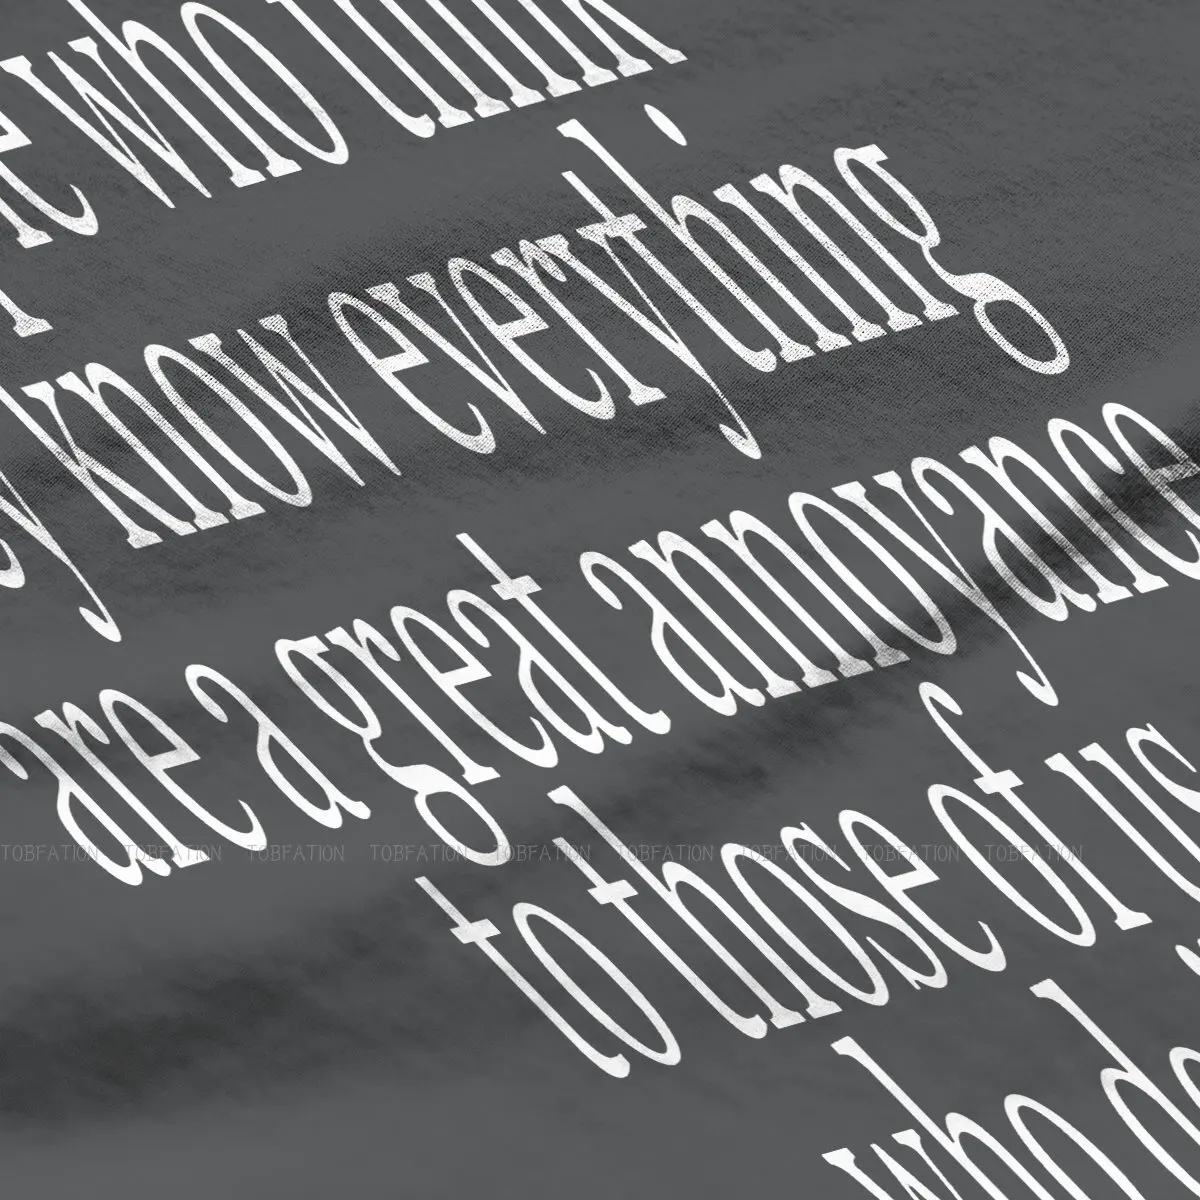 who think
know everything
are a great annoyance
TOBFATION TOBFATION TOBFATION TOBFATION TOBFATION TOBFATION TOBFATION TOBFATION TOBFATION
to those of us
who